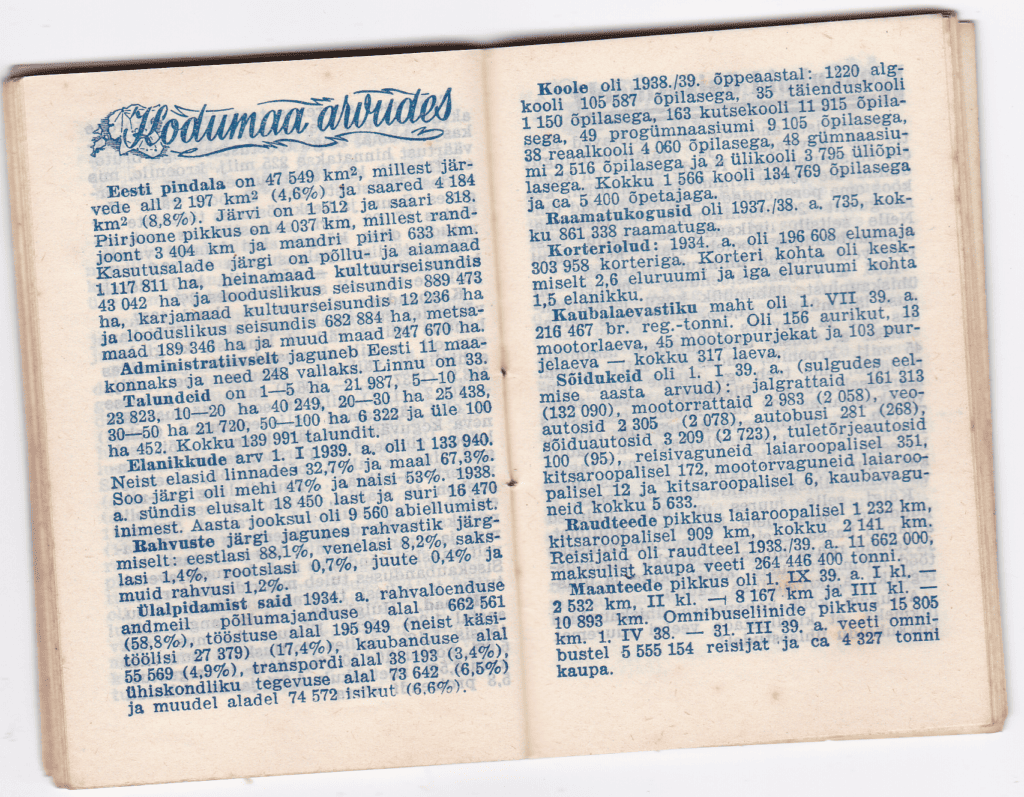 Kodumaa arvudes
Eesti pindala on 47 549 km², millest jär-
vede all 2 197 km² (4,6%) ja saared 4 184
km² (8,8%). Järvi on 1 512 ja saari 818.
Piirjoone pikkus on 4 037 km, millest rand-
joont 3 404 km ja mandri piiri 633 km.
Kasutusalade järgi on põllu- ja aiamaad
1 117 811 ha, heinamaad kultuurseisundis
43 042 ha ja looduslikus seisundis 889 473
ha, karjamaad kultuurseisundis 12 236 ha
ja looduslikus seisundis 682 884 ha, metsa-
maad 189 346 ha ja muud maad 247 670 ha.
Administratiivselt jaguneb Eesti 11 maa-
konnaks ja need 248 vallaks. Linnu on 33.
Talundeid on 1—5 ha 21 987, 5—10 ha
23 823, 10—20 ha 40 249, 20—30 ha 25 438,
30—50 ha 21 720, 50—100 ha 6 322 ja üle 100
ha 452. Kokku 139 991 talundit.
Elanikkude arv 1. I 1939. a. oli 1 133 940.
Neist elasid linnades 32,7% ja maal 67,3%.
Soo järgi oli mehi 47% ja naisi 53%. 1938.
a. sündis elusalt 18 450 last ja suri 16 470
inimest. Aasta jooksul oli 9 560 abiellumist.
Rahvuste järgi jagunes rahvastik järg-
miselt: eestlasi 88,1%, venelasi 8,2%, saks-
lasi 1,4%, rootslasi 0,7%, juute 0,4% ja
muid rahvusi 1,2%.
Ülalpidamist said 1934. a. rahvaloenduse
andmeil põllumajanduse alal 662 561
(58,8%), tööstuse alal 195 949 (neist käsi-
töölisi 27 379) (17,4%), kaubanduse alal
55 569 (4,9%), transpordi alal 38 193 (3,4%),
ühiskondliku tegevuse alal 73 642 (6,5%)
ja muudel aladel 74 572 isikut (6,6%).
Koole oli 1938./39. õppeaastal: 1220 alg-
kooli 105 587 õpilasega, 35 täienduskooli
1 150 õpilasega, 163 kutsekooli 11 915 õpila-
sega, 49 progümnaasiumi 9 105 õpilasega,
38 reaalkooli 4 060 õpilasega, 48 gümnaasiu-
mi 2 516 õpilasega ja 2 ülikooli 3 795 üliõpi-
lasega. Kokku 1 566 kooli 134 769 õpilasega
ja ca 5 400 õpetajaga.
Raamatukogusid oli 1937./38. a. 735, kok-
ku 861 338 raamatuga.
Korteriolud: 1934. a. oli 196 608 elumaja
303 958 korteriga. Korteri kohta oli kesk-
miselt 2,6 eluruumi ja iga eluruumi kohta
1,5 elanikku.
Kaubalaevastiku maht oli 1. VII 39. a.
216 467 br. reg.-tonni. Oli 156 aurikut, 13
mootorlaeva, 45 mootorpurjekat ja 103 pur-
jelaeva — kokku 317 laeva.
Sõidukeid oli 1. I 39. a. (sulgudes eel-
mise aasta arvud): jalgrattaid 161 313
(132 090), mootorrattaid 2 983 (2 058), veo-
autosid 2 305 (2 078), autobusi 281 (268),
sõiduautosid 3 209 (2 723), tuletõrjeautosid
100 (95), reisivaguneid laiaroopalisel 351,
kitsaroopalisel 172, mootorvaguneid laiaroo-
palisel 12 ja kitsaroopalisel 6, kaubavagu-
neid kokku 5 633.
Raudteede pikkus laiaroopalisel 1 232 km,
kitsaroopalisel 909 km, kokku 2 141 km.
Reisijaid oli raudteel 1938./39. a. 11 662 000,
maksulist kaupa veeti 264 446 400 tonni.
Maanteede pikkus oli 1. IX 39. a. I kl. —
2 532 km, II kl. — 8 167 km ja III kl. —
10 893 km. Omnibuseliinide pikkus 15 805
km. 1. IV 38. — 31. III 39. a. veeti omni-
bustel 5 555 154 reisijat ja ca 4 327 tonni
kaupa.